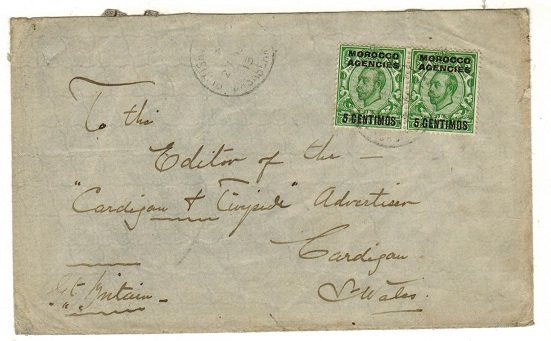 MOROCCO AGENCIES MOROCCO AGENCIES
5 CENTIMOS 5 CENTIMOS
To the
Editor of the —
"Cardigan & Tivyside" Advertiser
Cardigan
S. Wales.
Gt. Britain —